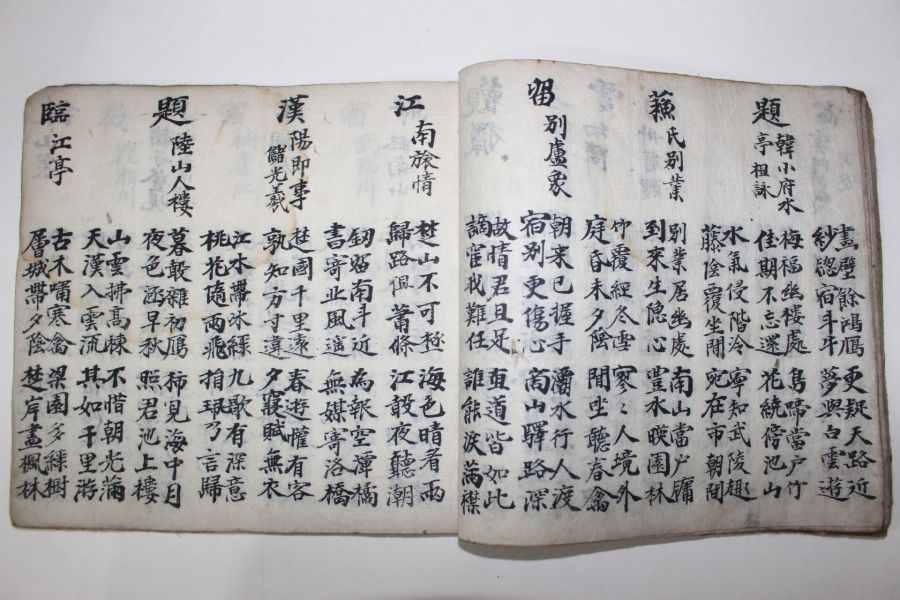 畫壁餘鴻鴈 更疑天路近
紗窓宿斗牛 夢與白雲遊
題韓小府水
亭祖詠
梅福幽棲處 鳥啼當戶竹
佳期不忘還 花繞傍池山
水氣侵階冷 寧知武陵趣
藤陰覆坐閒 宛在市朝間
蘓氏別業
別業居幽處 南山當戶牖
到來生隐心 豊水暎園林
竹覆經冬雪 寥〻人境外
庭昏未夕陰 間坐聽春禽
留別盧象
朝來已握手 灞水行人渡
宿別更傷心 商山驛路深
故晴君且足 直道皆如此
謫宦我難任 誰能淚滿襟
江南旅情
楚山不可極 海色晴看雨
歸路但蕭條 江聲夜聽潮
釼留南斗近 為報空潭橘
書寄北風遙 無媒寄洛橋
漢陽即事
儲光羲
楚國千里遠 春遊懽有客
孰知方寸違 夕寢賦無衣
江水帶冰綠 九歌有深意
桃花隨雨飛 捐玦乃言歸
題陸山人樓
暮聲雜初鴈 稀見海中月
夜色涵早秋 照君池上樓
山雲拂高棟 不惜朝光滿
天漢入雲流 其如千里游
臨江亭
古木嘯寒禽 梁園多綠樹
層城帶夕陰 楚岸盡楓林